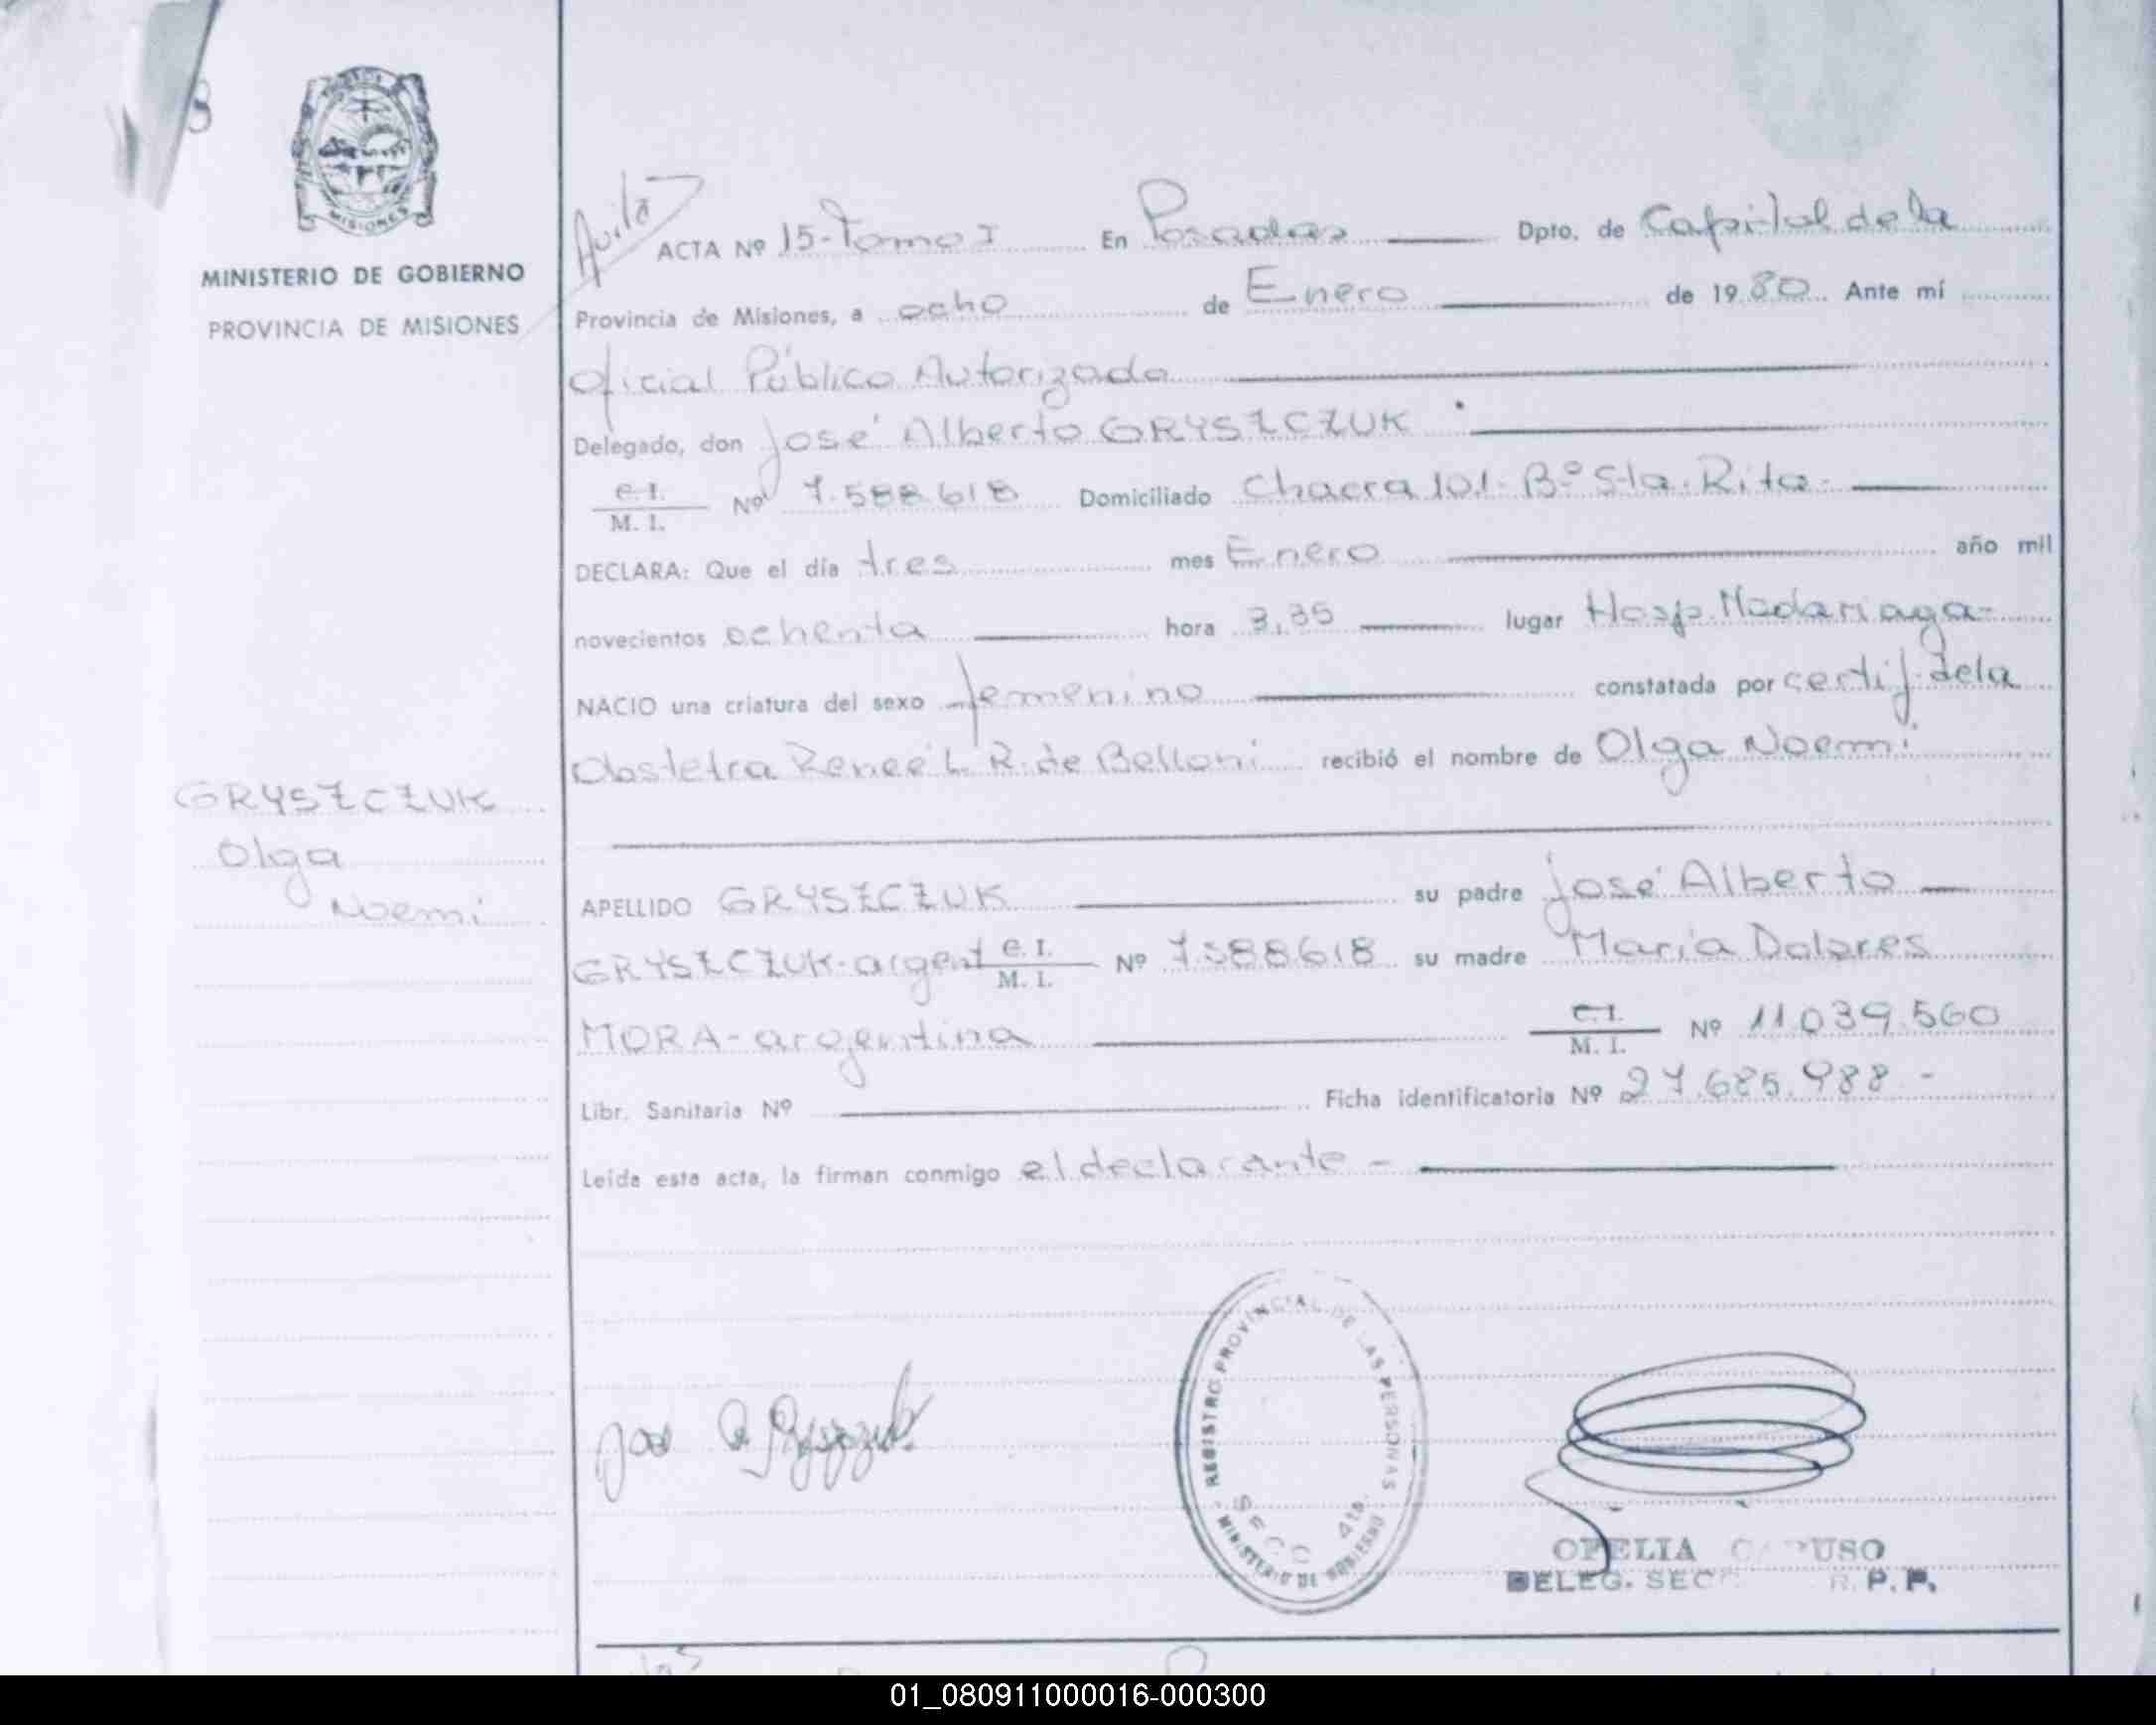 MISIONES
MINISTERIO DE GOBIERNO
PROVINCIA DE MISIONES
ACTA Nº 15-Tomo I En Posadas Dpto. de Capital de la
Provincia de Misiones, a ocho de Enero de 1980. Ante mí
Oficial Público Autorizado
Delegado, don José Alberto GRYSZCZUK
C. I. M. I. Nº 7.588.618 Domiciliado Chacra 101- Bº Sta. Rita-
DECLARA: Que el día tres mes Enero año mil
novecientos ochenta hora 3,35 lugar Hosp. Madariaga-
NACIO una criatura del sexo femenino constatada por certif. de la
Obstetra Reneé L. R. de Belloni recibió el nombre de Olga Noemi
GRYSZCZUK
Olga
Noemi
APELLIDO GRYSZCZUK su padre José Alberto
GRYSZCZUK-argent C. I. M. I. Nº 7.588618 su madre María Dolores
MORA-argentina C. I. M. I. Nº 11.039.560
Libr. Sanitaria Nº Ficha identificatoria Nº 27.685.988-
Leída esta acta, la firman conmigo el declarante-
REGISTRO PROVINCIAL DE LAS PERSONAS
SECC 4ta.
MINISTERIO DE GOBIERNO
OFELIA
DELEG. SECC R. P. P.
01_080911000016-000300